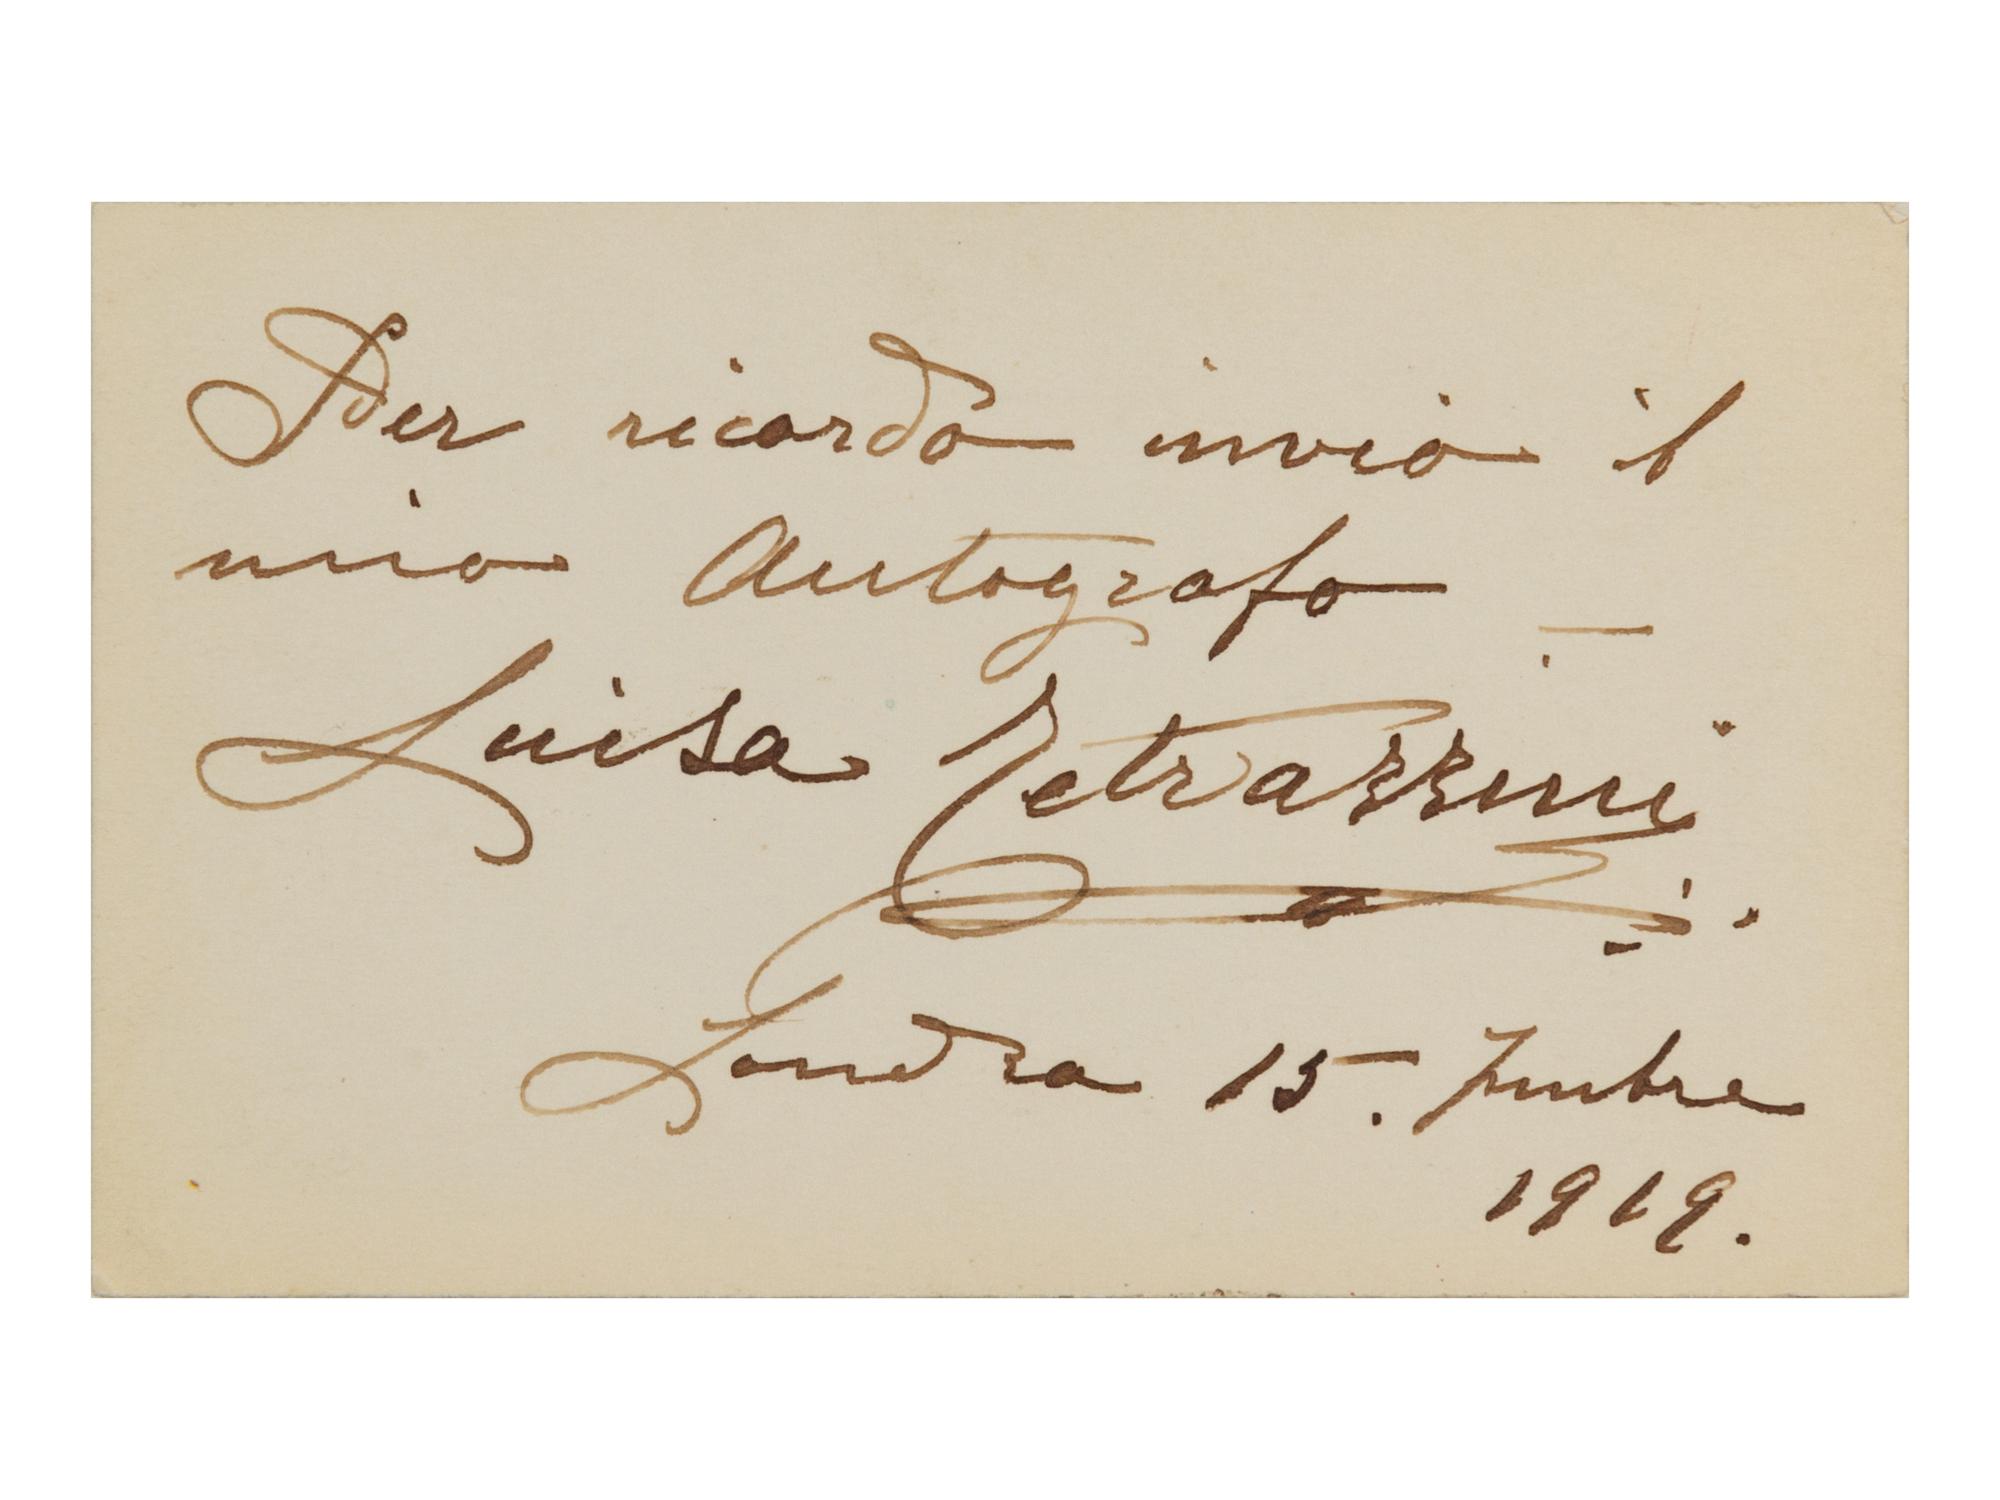 Per ricordo invio il
mio Autografo —
Luisa Tetrazzini.
Londra 15. 7mbre
1919.